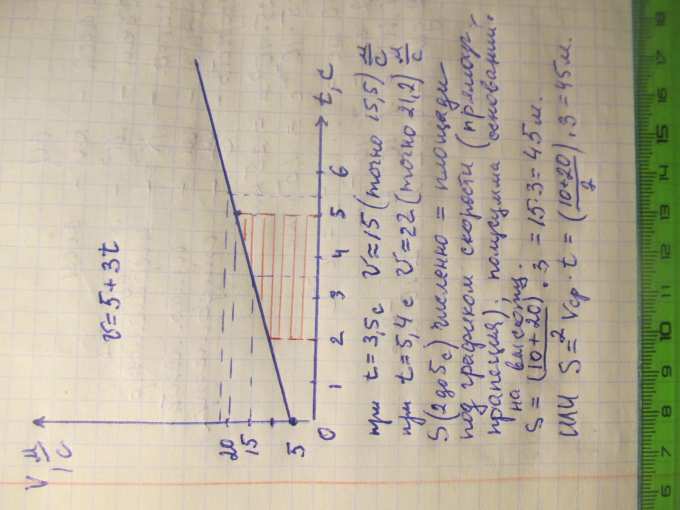 V м/с
v = 5 + 3t
20
15
5
0 1 2 3 4 5 6 t, с
при t = 3,5 с v ≈ 15 (точно 15,5) м/с
при t = 5,4 с v ≈ 22 (точно 21,2) м/с
S (2 до 5 с) численно = площади
под графиком скорости (прямоуг.
трапеция). полусумма оснований.
на высоту.
S = (10 + 20)/2 · 3 = 15·3 = 45 м.
или S = Vср · t = (10+20)/2 · 3 = 45 м.
6 7 8 9 10 11 12 13 14 15 16 17 18